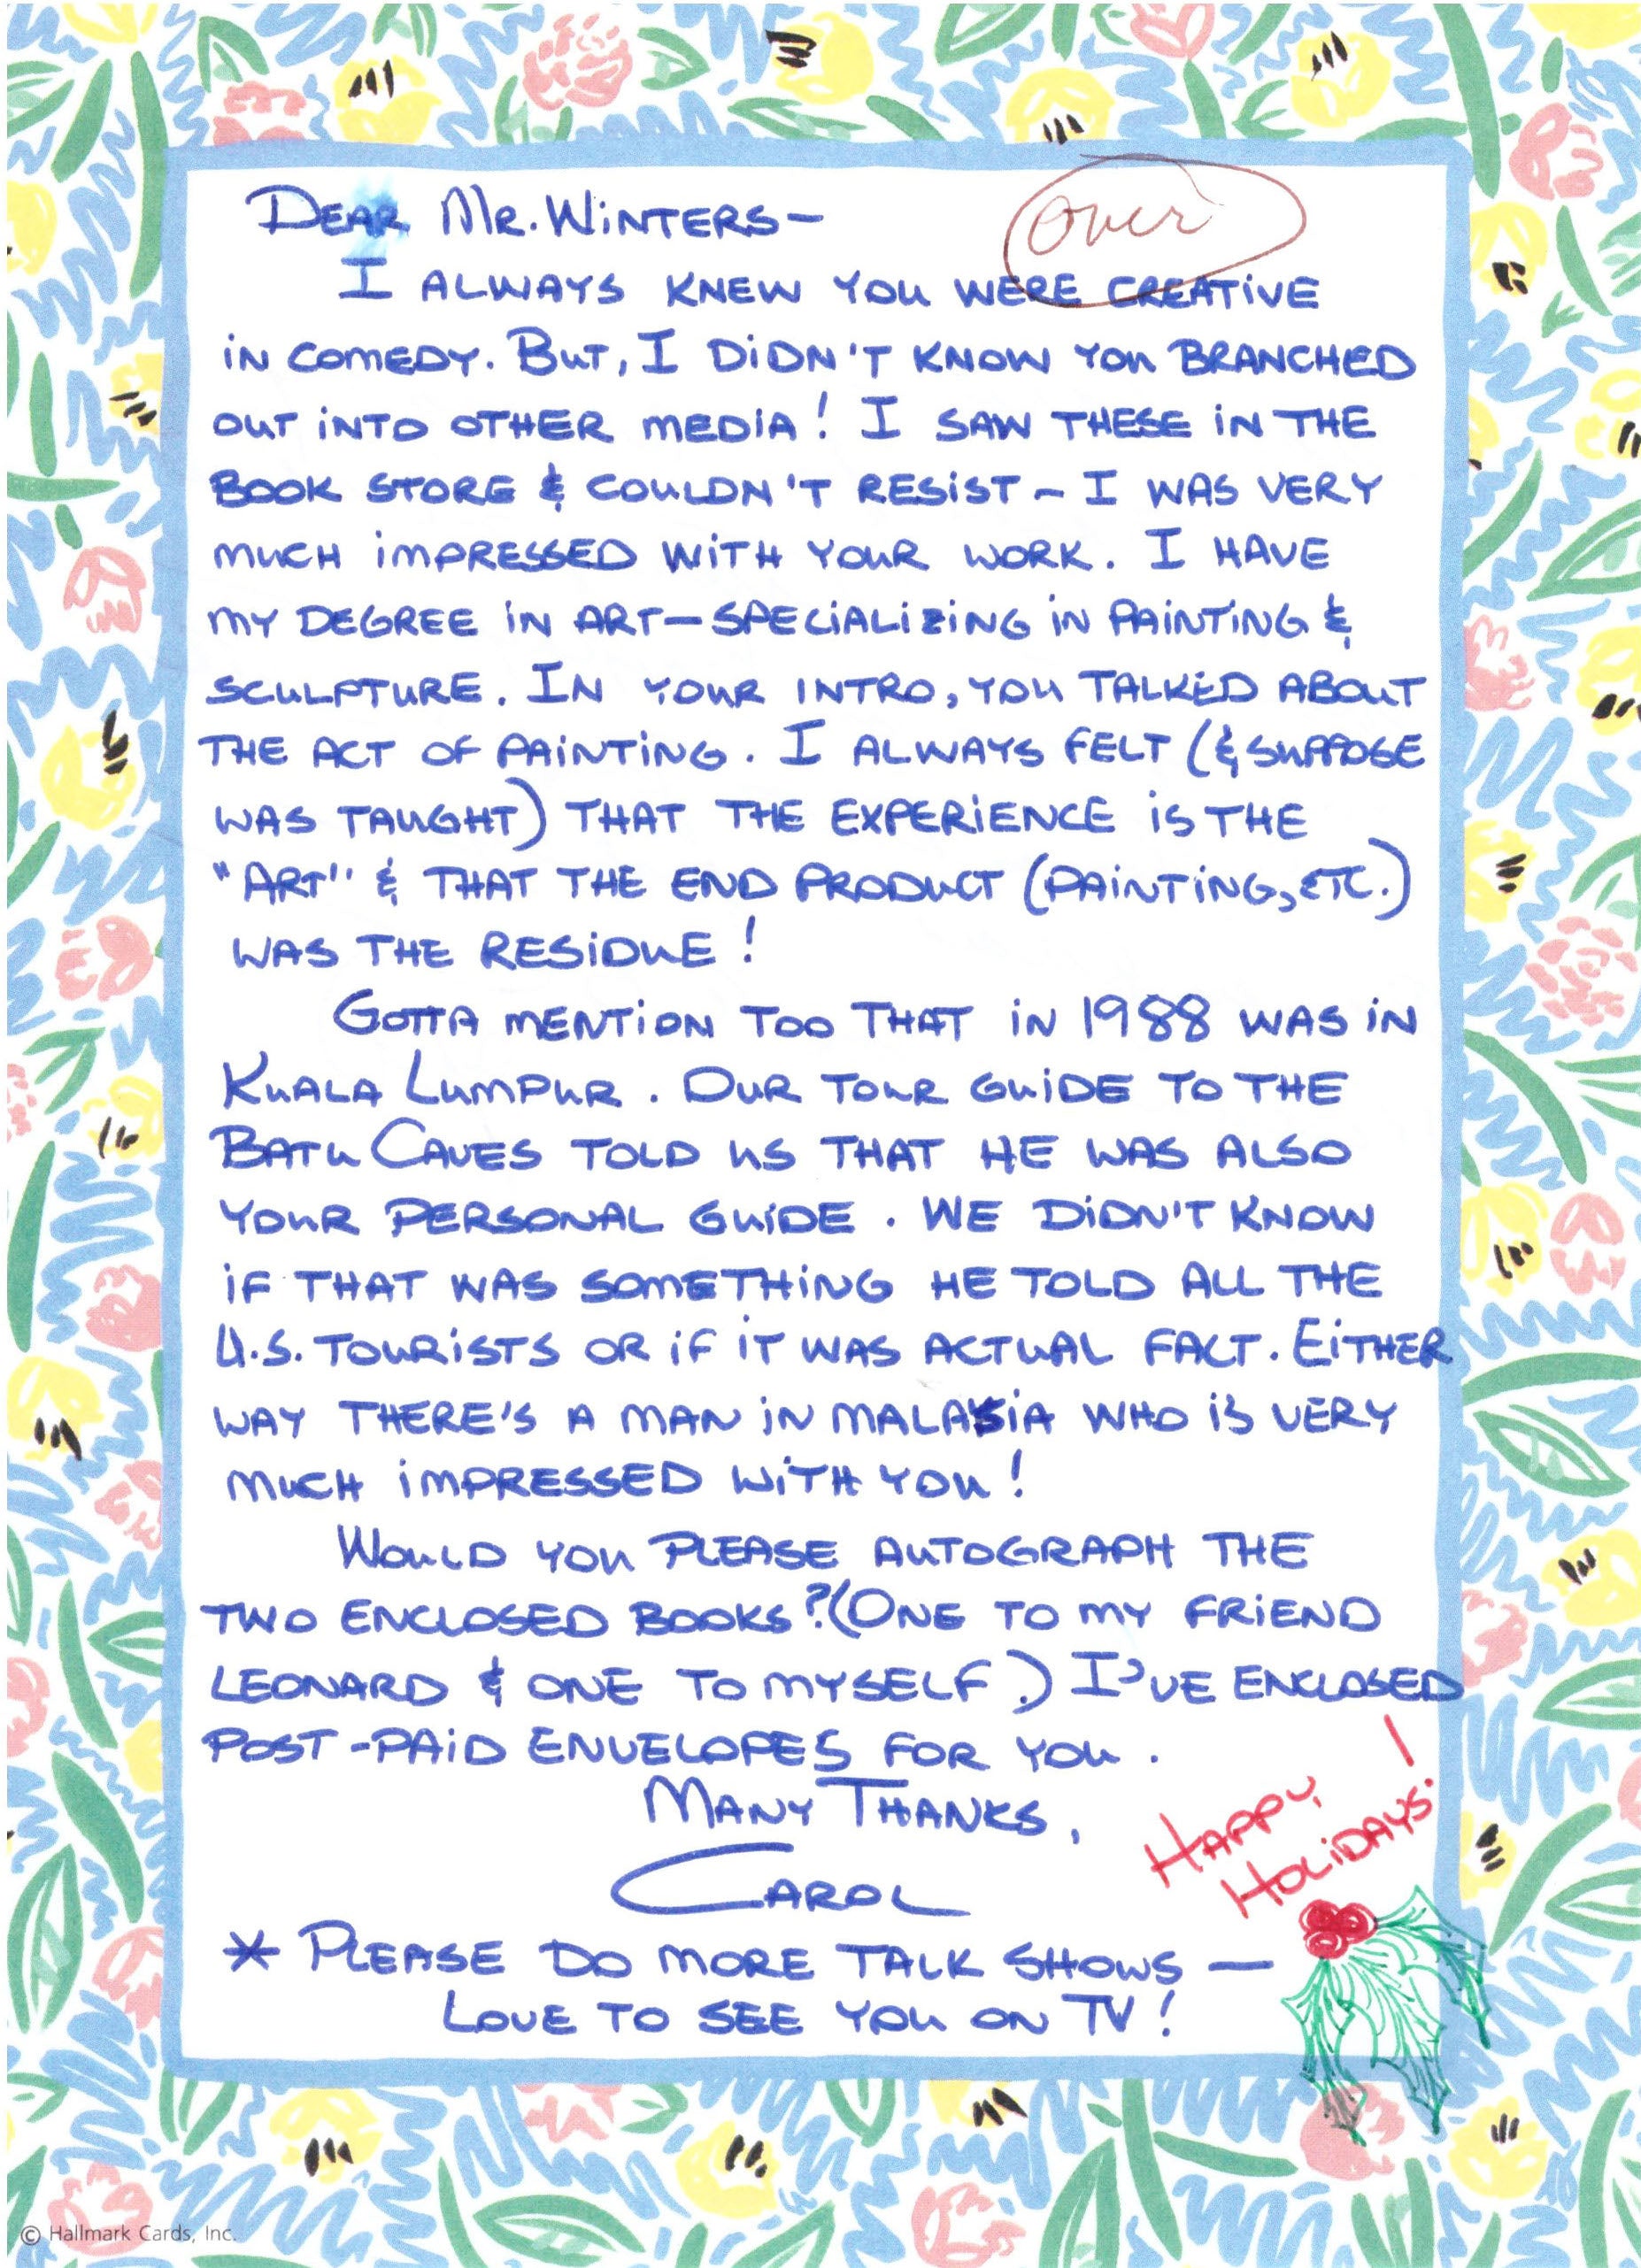 DEAR MR. WINTERS—
Over
I ALWAYS KNEW YOU WERE CREATIVE
IN COMEDY. BUT, I DIDN'T KNOW YOU BRANCHED
OUT INTO OTHER MEDIA! I SAW THESE IN THE
BOOK STORE & COULDN'T RESIST – I WAS VERY
MUCH IMPRESSED WITH YOUR WORK. I HAVE
MY DEGREE IN ART—SPECIALIZING IN PAINTING &
SCULPTURE. IN YOUR INTRO, YOU TALKED ABOUT
THE ACT OF PAINTING. I ALWAYS FELT (& SUPPOSE
WAS TAUGHT) THAT THE EXPERIENCE IS THE
"ART" & THAT THE END PRODUCT (PAINTING, ETC.)
WAS THE RESIDUE!
GOTTA MENTION TOO THAT IN 1988 WAS IN
KUALA LUMPUR. OUR TOUR GUIDE TO THE
BATU CAVES TOLD US THAT HE WAS ALSO
YOUR PERSONAL GUIDE. WE DIDN'T KNOW
IF THAT WAS SOMETHING HE TOLD ALL THE
U.S. TOURISTS OR IF IT WAS ACTUAL FACT. EITHER
WAY THERE'S A MAN IN MALAYSIA WHO IS VERY
MUCH IMPRESSED WITH YOU!
WOULD YOU PLEASE AUTOGRAPH THE
TWO ENCLOSED BOOKS? (ONE TO MY FRIEND
LEONARD & ONE TO MYSELF.) I'VE ENCLOSED
POST-PAID ENVELOPES FOR YOU.
MANY THANKS,
CAROL
HAPPY
HOLIDAYS!
* PLEASE DO MORE TALK SHOWS —
LOVE TO SEE YOU ON TV!
© Hallmark Cards, Inc.